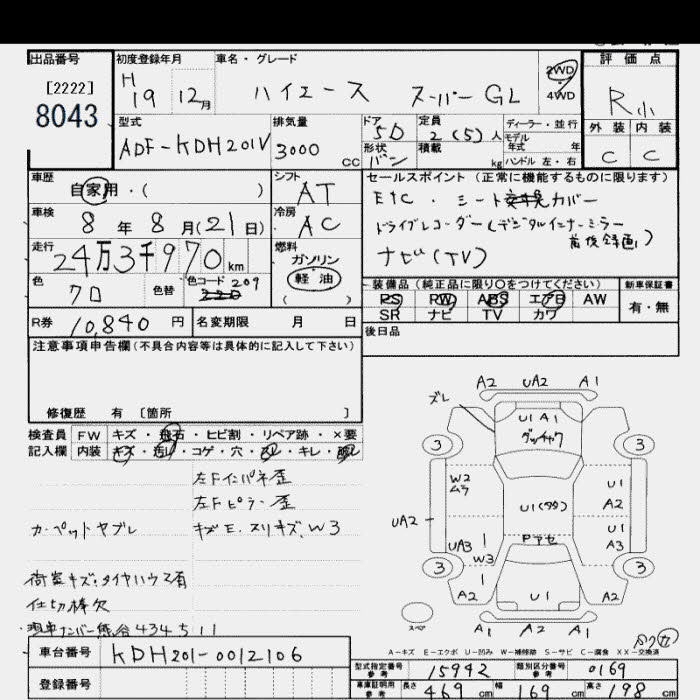 出品番号
[2222]
8043
初度登録年月
H 19 12月
車名・グレード
ハイエース スーパーGL
2WD
4WD
評価点
R小
外装 内装
C C
型式
ADF-KDH201V
排気量
3000 cc
ドア 5D
形状 バン
定員 2(5)人
積載 kg
ディーラー・並行
モデル年式 年
ハンドル 左・右
車歴
自家用・( )
シフト
AT
セールスポイント(正常に機能するものに限ります)
ETC・シートカバー
ドライブレコーダー(デジタルインナーミラー
前後録画)
ナビ(TV)
車検
8年8月(21日)
冷房
AC
走行
24万3千970km
燃料
ガソリン
軽油
( )
色
クロ
色替
色コード 209
装備品(純正品に限り○をつけてください)
PS PW ABS エアB AW
SR ナビ TV カワ
新車保証書
有・無
R券 10,840円
名変期限 月 日
後日品
注意事項申告欄(不具合内容等は具体的に記入して下さい)
修復歴 有 [箇所 ]
検査員記入欄
FW キズ・飛石・ヒビ割・リペア跡・×要
内装 キズ・汚レ・コゲ・穴・・キレ・
左Fインパネ歪
左Fピラー歪
カーペットヤブレ
キズE、スリキズ、W3
荷室キズ・タイヤハウス有
仕切棒欠
434 5 11
車台番号
KDH201-0012106
登録番号
A2 UA2 A1
ズレ
U1 A1
グッチャク
3 3
W2
ムラ
U1
A2
UA2
U1(タタ)
U1
A3
UA3
W3
3 3
A2
U1
A2
スペア
A1 A2 A1
A-キズ E-エクボ U-凹み W-補修跡 S-サビ C-腐食 XX-交換済
型式指定番号 参考 15942
類別区分番号 参考 0169
車庫証明用 参考 長さ 469cm 幅 169cm 高さ 198cm